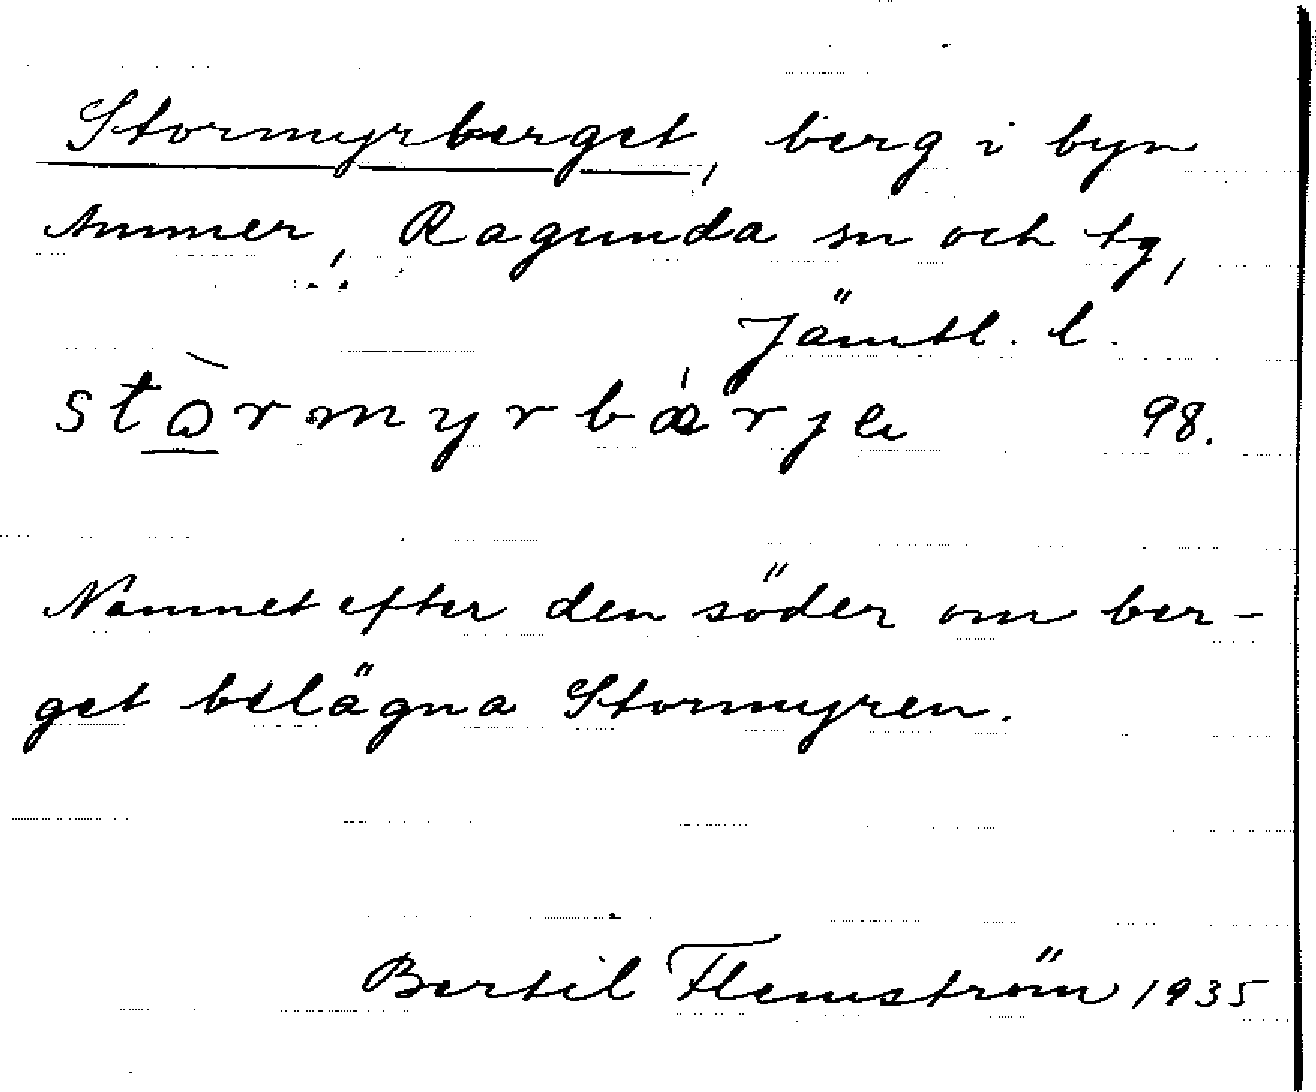 Stormyrberget, berg i byn
Ammer, Ragunda sn och tg,
Jämtl. l.
stòrmyrbæ̍rje 98.
Namnet efter den söder om ber-
get belägna Stormyren.
Bertil Flemström 1935